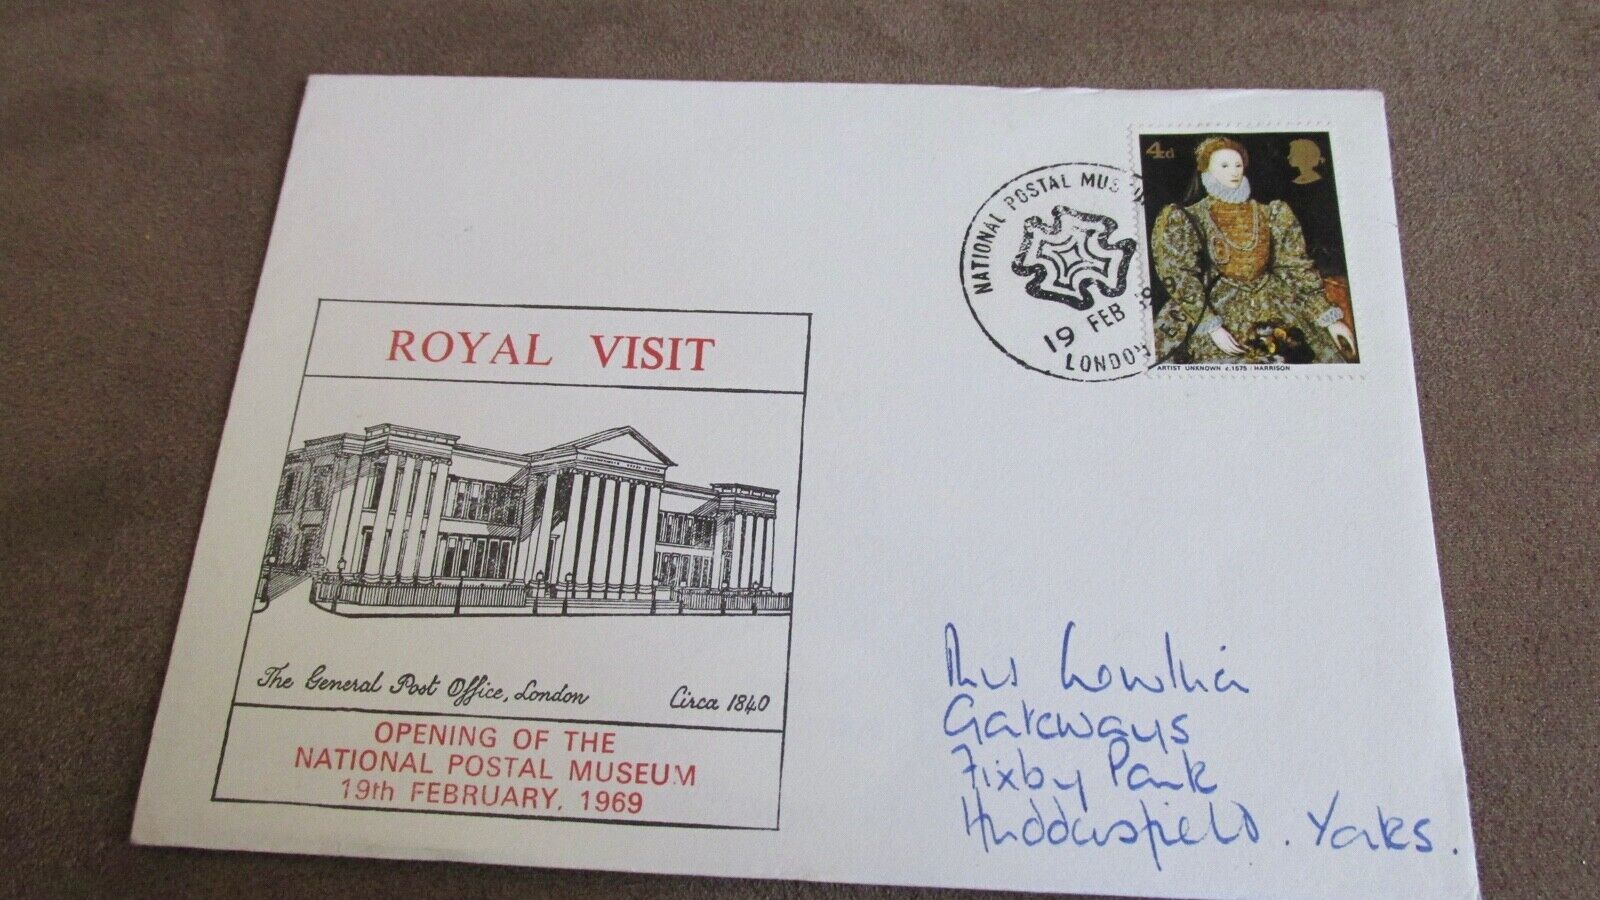 NATIONAL POSTAL MUSEUM
19 FEB 1969
LONDON EC
4d
ARTIST UNKNOWN c.1575 : HARRISON
ROYAL VISIT
The General Post Office, London Circa 1840
OPENING OF THE
NATIONAL POSTAL MUSEUM
19th FEBRUARY, 1969
Mrs
Gateways
Fixby Park
Huddersfield. Yorks.